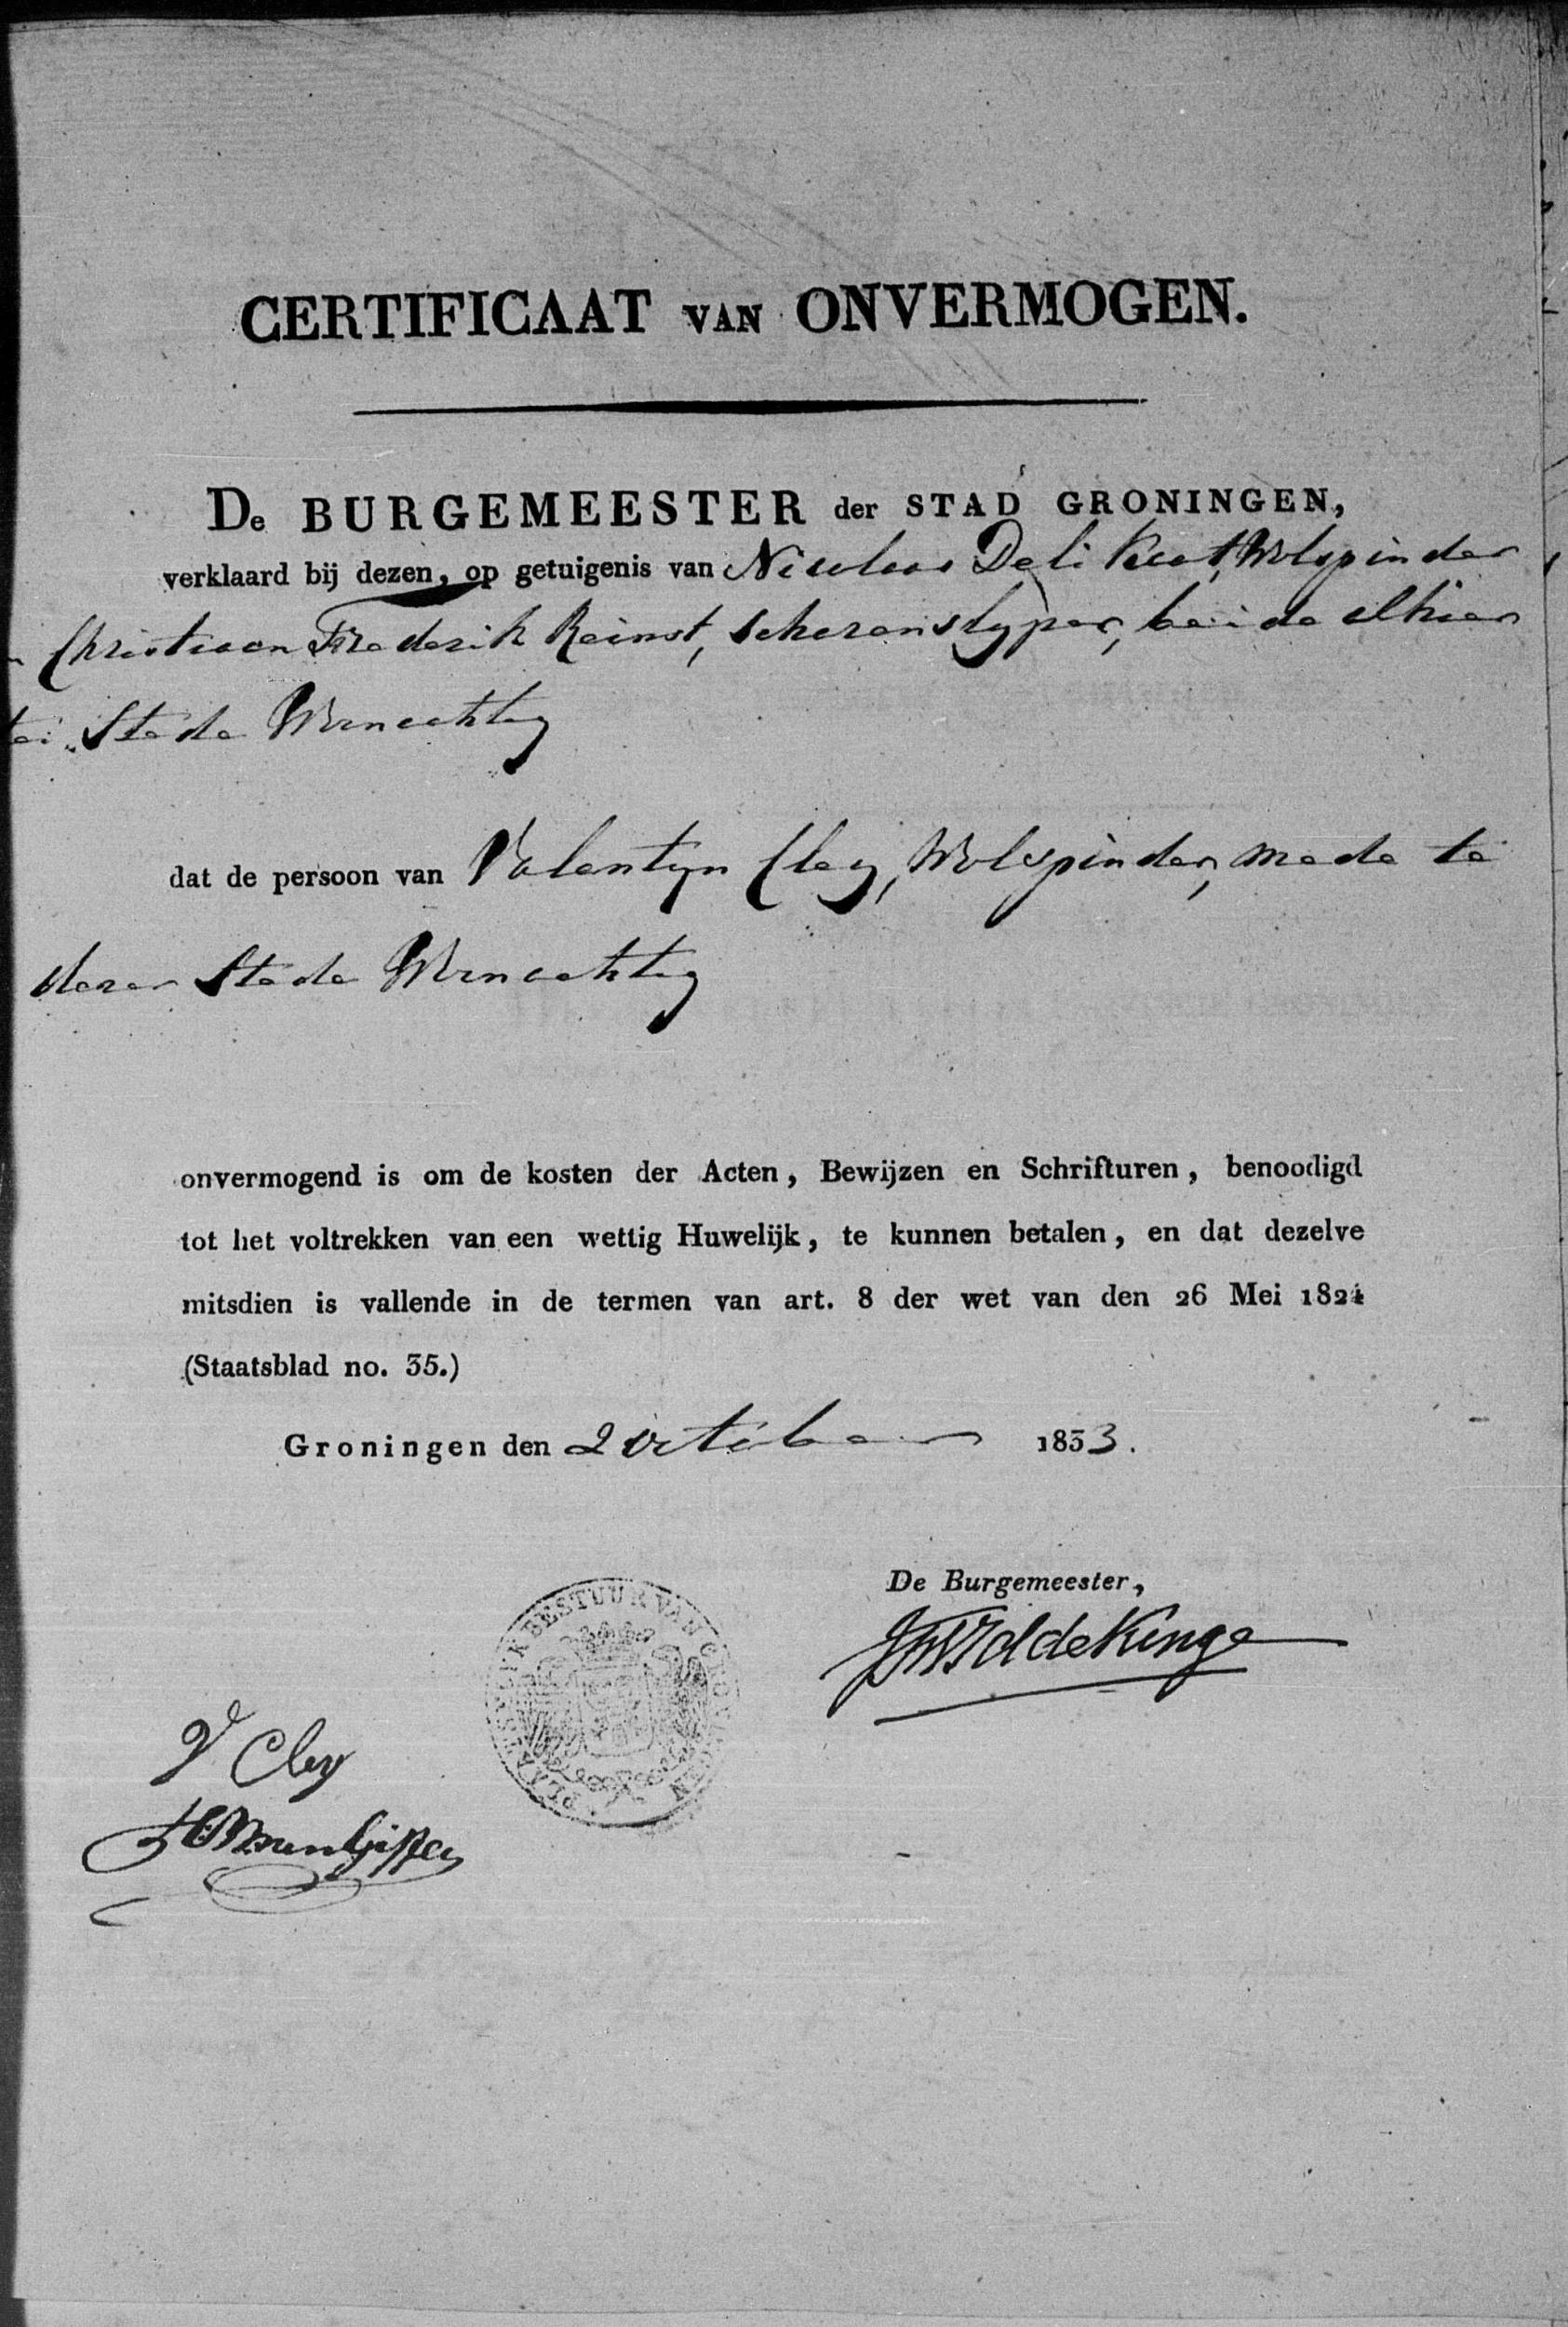 CERTIFICAAT VAN ONVERMOGEN.
De BURGEMEESTER der STAD GRONINGEN,
verklaard bij dezen, op getuigenis van Nicolaas Deli Kaat, Wolspinder
Christiaan Frederik Reinst, scherenslyper, beide alhier
te Stede Woonachtig
dat de persoon van Valentyn Cley, Wolspinder, mede te
dezer Stede Woonachtig
onvermogend is om de kosten der Acten, Bewijzen en Schrifturen, benoodigd
tot het voltrekken van een wettig Huwelijk, te kunnen betalen, en dat dezelve
mitsdien is vallende in de termen van art. 8 der wet van den 26 Mei 1824
(Staatsblad no. 35.)
Groningen den 2 October 1833.
De Burgemeester,
PLAATSELIJK BESTUUR VAN GRONINGEN
V Cley